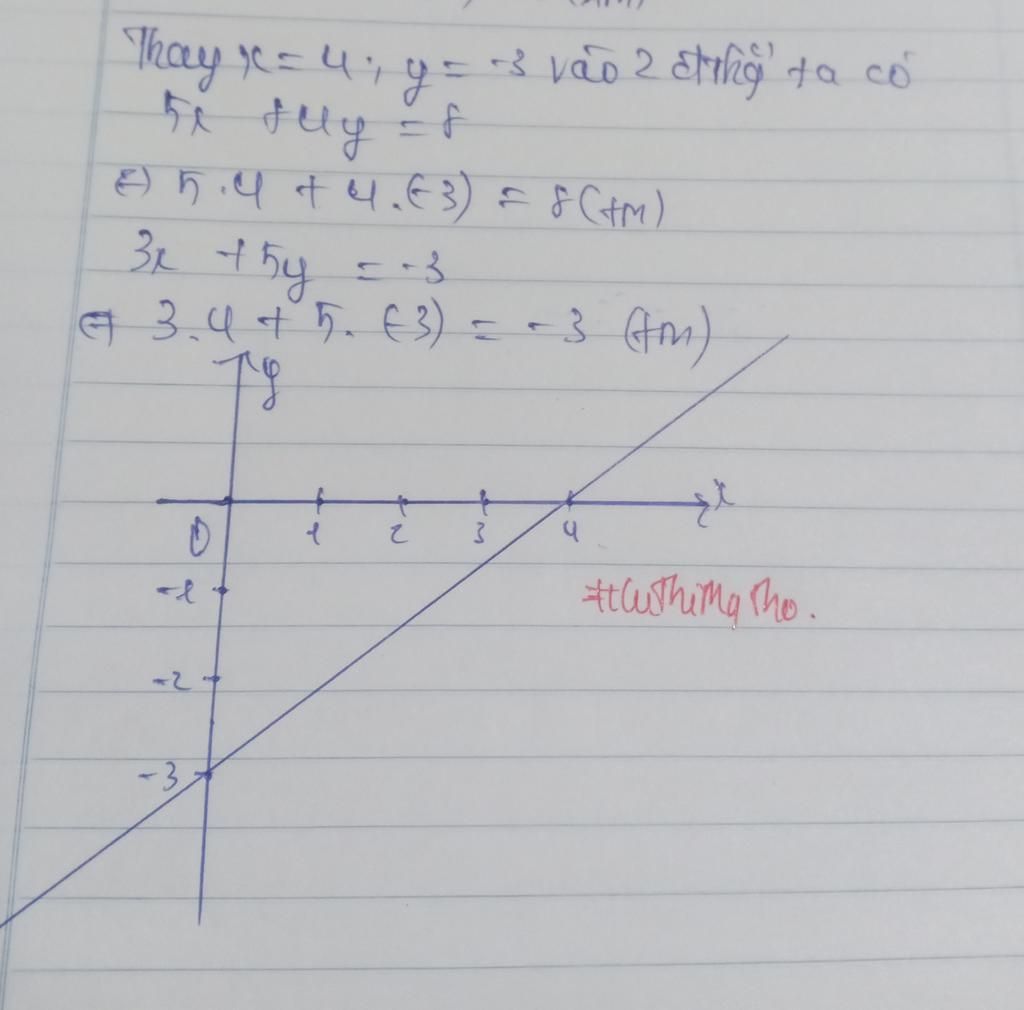 Thay x = 4 ; y = -3 vào 2 ta có
5x + 4y = 8
⇔ 5.4 + 4.(-3) = 8 (tm)
3x + 5y = -3
⇔ 3.4 + 5.(-3) = -3 (tm)
y
x
0 1 2 3 4
-1
-2
-3